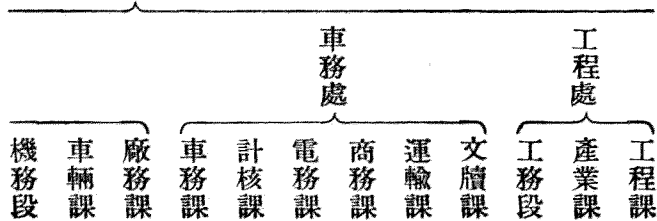 工程處
車務處
工程課
產業課
工務段
文牘課
運輸課
商務課
電務課
計核課
車務課
廠務課
車輛課
機務段